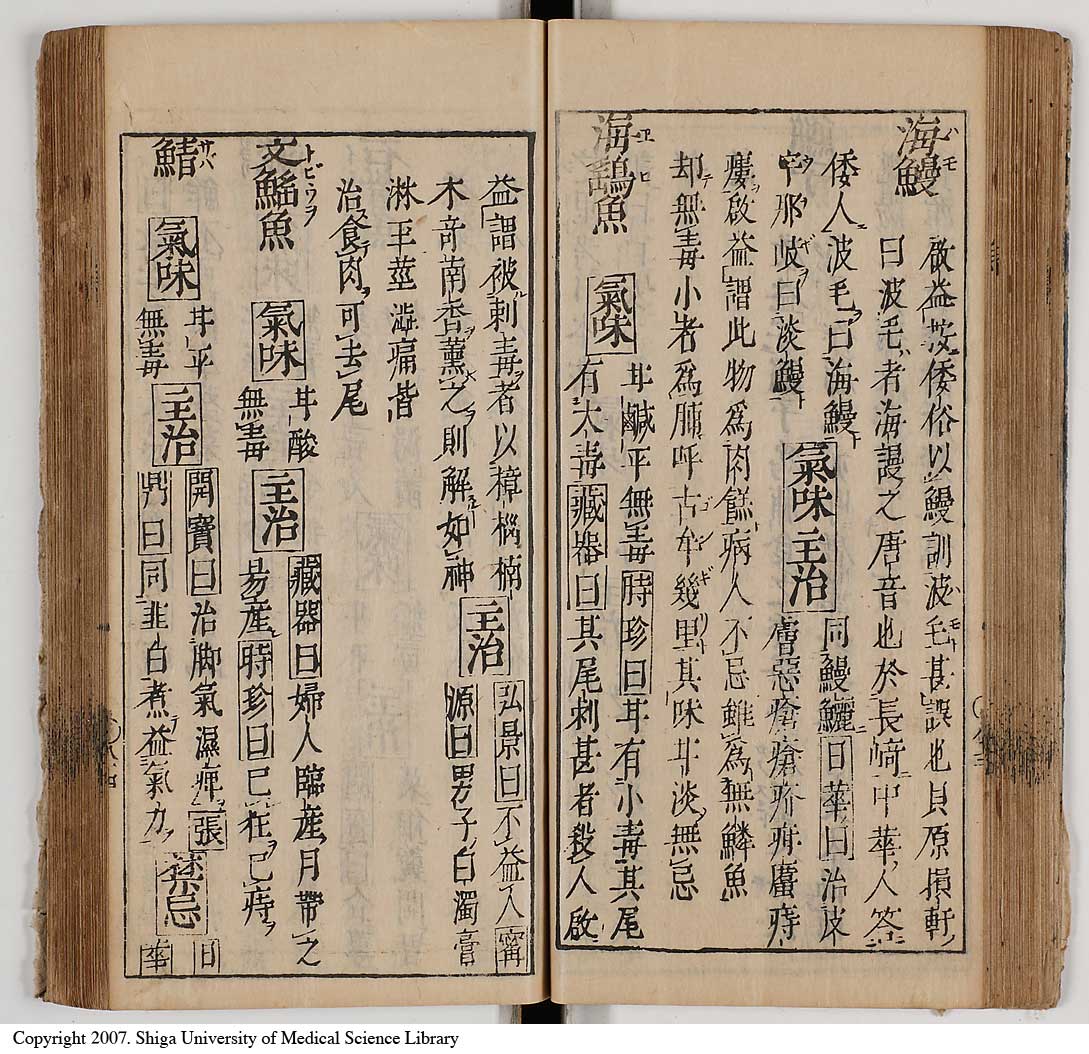 海鰻 啟益按倭俗以鰻訓波毛甚誤也貝原損軒
曰波毛者海鰻之唐音也於長崎中華人答
倭人波毛曰海鰻 氣味主治 同鰻鱺日華曰治皮
宇那岐曰淡鰻 膚惡瘡疥疳䘌痔
瘻啟益謂此物為肉餻病人不忌雖為無鱗魚
却無毒小者為脯呼古牟幾里其味甘淡無忌
海鷂魚 氣味 甘鹹平無毒時珍曰有小毒其尾
有大毒藏器曰其尾刺甚者殺人啟
益謂被刺毒者以樟楠
木奇南香薰之則解如神 主治 弘景曰不益人甯
源曰男子白濁膏
淋玉莖澁痛皆
治食肉可去尾
文鰩魚 氣味 甘酸無毒 主治 藏器曰婦人臨産月帶之
易産時珍曰已狂已痔
鯖 氣味 甘平無毒 主治 開寶曰治脚氣濕痺張
鼎曰同韭白煮益氣力 禁忌 日華
ハモ
エイ
トビウヲ
サバ
Copyright 2007. Shiga University of Medical Science Library